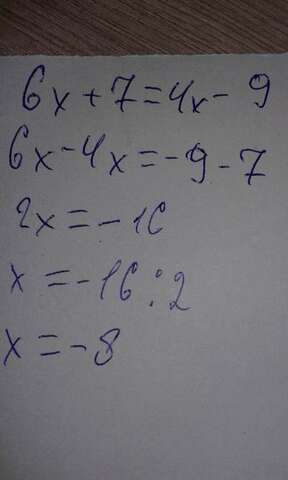 6x+7=4x-9
6x-4x=-9-7
2x=-16
x=-16:2
x=-8